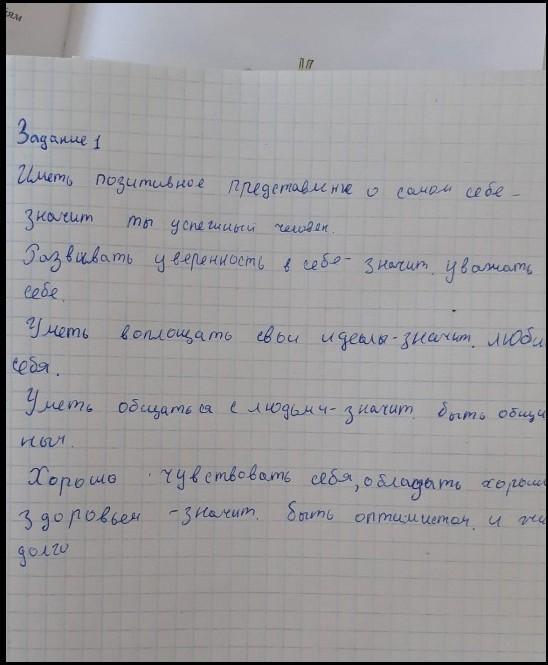 ьям
Задание 1
Иметь позитивное представление о самом себе -
значит ты успешный человек.
Развивать уверенность в себе - значит уважать
себе.
Уметь воплощать свои идеалы - значит люби
себя.
Уметь общаться с людьми - значит быть общи
ным.
Хорошо чувствовать себя, обладать хорош
здоровьем - значит быть оптимистом и жи
долго